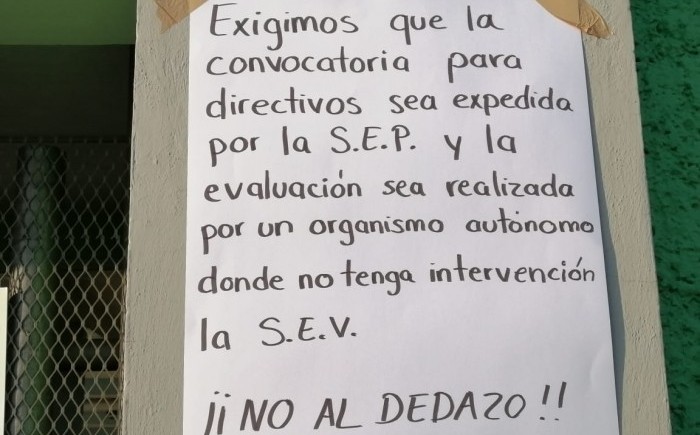 Exigimos que la
convocatoria para
directivos sea expedida
por la S.E.P. y la
evaluación sea realizada
por un organismo autónomo
donde no tenga intervención
la S.E.V.
¡¡NO AL DEDAZO!!